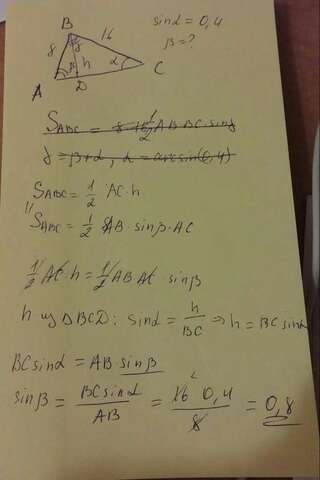 B
16
sinα = 0,4
8
β = ?
h
α
C
A
D
S_ABC = 8·16·1/2 AB·BC·sinγ
γ = β+α, α = arcsin(0,4)
S_ABC = 1/2 AC·h
S_ABC = 1/2 AB·sinβ·AC
1/2 AC·h = 1/2 AB·AC·sinβ
h из ΔBCD: sinα = h/BC ⇒ h = BC sinα
BC sinα = AB·sinβ
sinβ = BC sinα / AB = 16·0,4 / 8 = 0,8